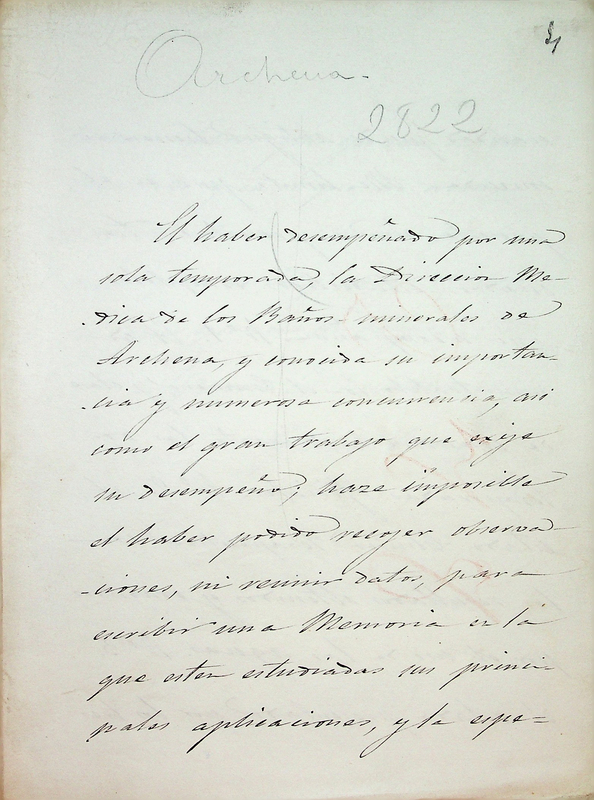 Archena.
2822
El haber desempeñado por una
sola temporada, la Direccion Me-
-dica de los Baños minerales de
Archena, y conocida su importan-
-cia y numerosa concurrencia, asi
como el gran trabajo, que exije
su desempeño; haze imposible
el haber podido recojer observa-
-ciones, ni reunir datos, para
escribir una Memoria en la
que esten estudiadas sus princi-
pales aplicaciones, y la espe=